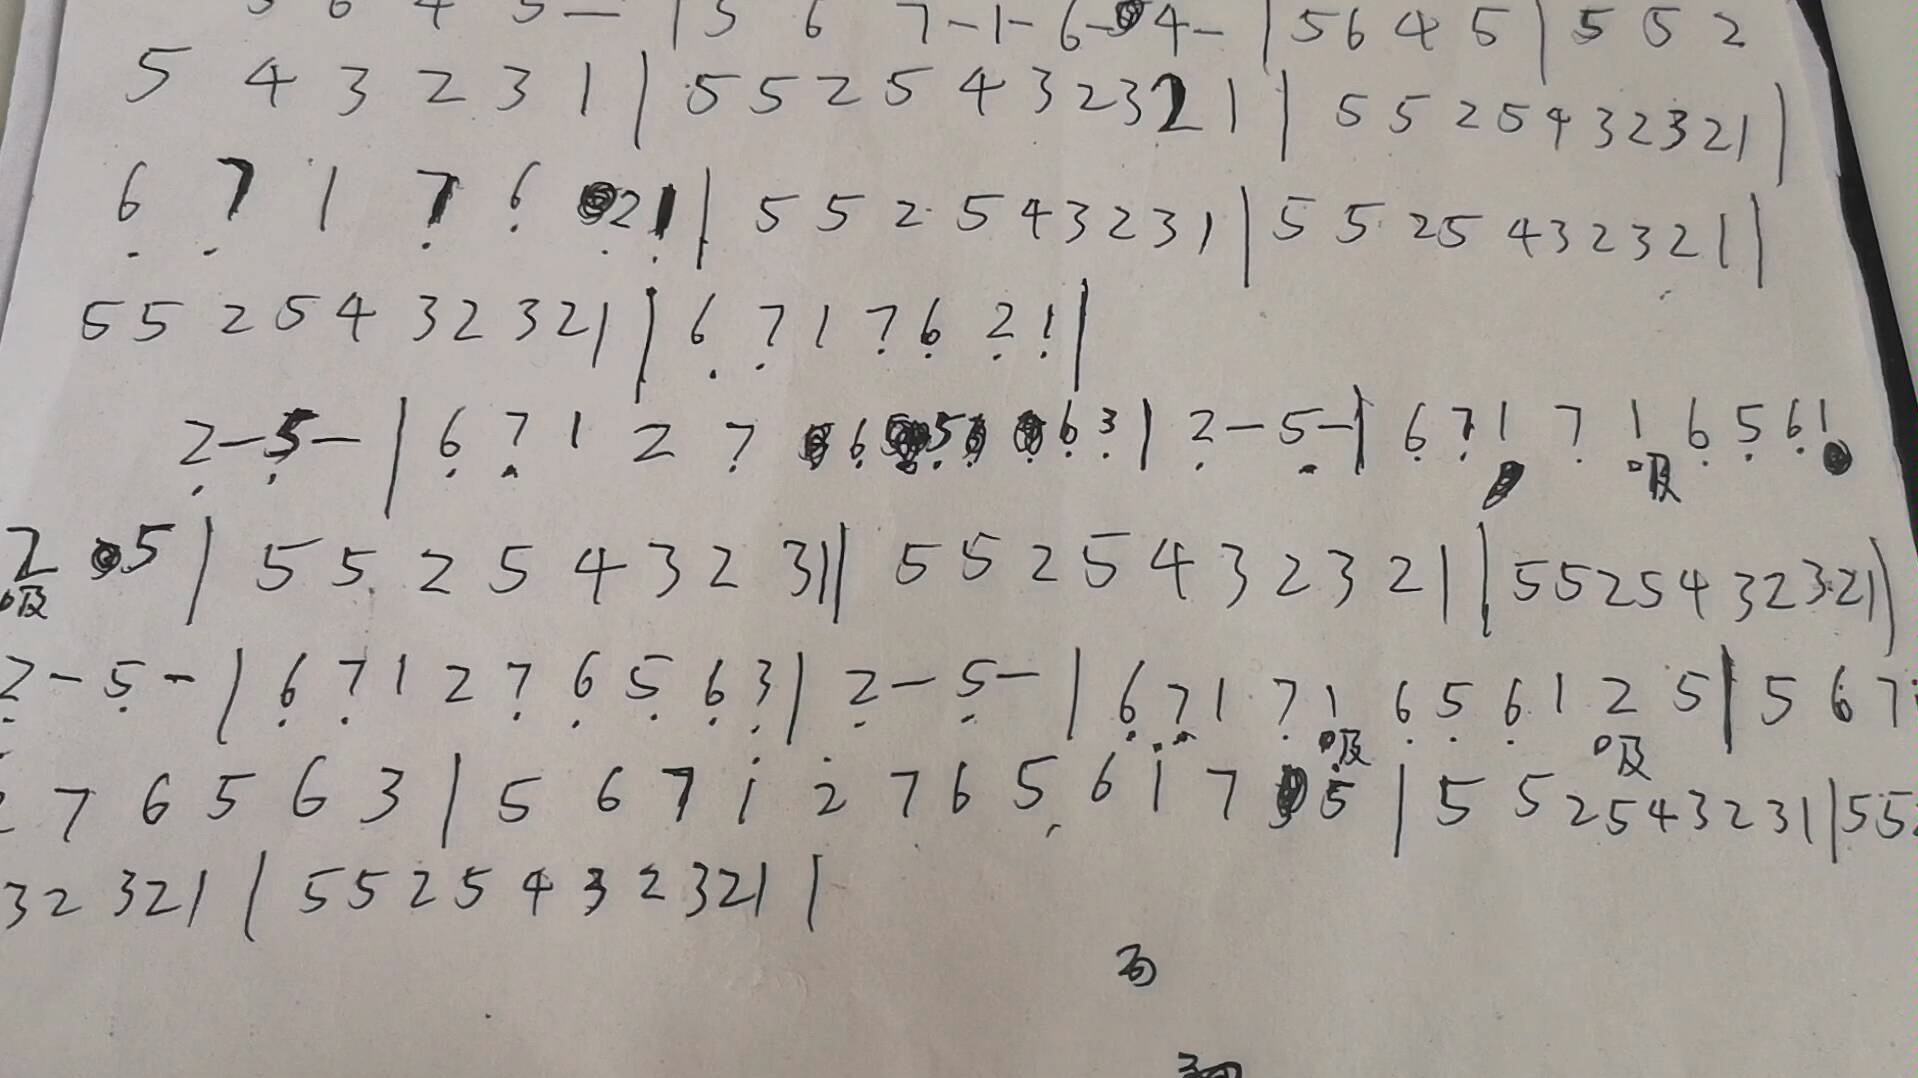 5 6 4 5 — | 5 6 7 - 1 - 6 - 4 - | 5 6 4 5 | 5 5 2
5 4 3 2 3 1 | 5 5 2 5 4 3 2 3 2 1 | 5 5 2 5 4 3 2 3 2 1 |
6̣ 7̣ 1 7̣ 6̣ 2̣ 1̣ | 5 5 2 5 4 3 2 3 1 | 5 5 2 5 4 3 2 3 2 1 |
5 5 2 5 4 3 2 3 2 1 | 6̣ 7̣ 1 7̣ 6̣ 2̣ 1̣ |
2̣ - 5̣ - | 6̣ 7̣ 1 2 7̣ 6̣ 5̣ 6̣ 3̣ | 2̣ - 5̣ - | 6̣ 7̣ 1 7̣ 1 6̣ 5̣ 6̣ 1
吸
2 5 | 5 5 2 5 4 3 2 3 1 | 5 5 2 5 4 3 2 3 2 1 | 5 5 2 5 4 3 2 3 2 1 |
吸
2̣ - 5̣ - | 6̣ 7̣ 1 2 7̣ 6̣ 5̣ 6̣ 3̣ | 2̣ - 5̣ - | 6̣ 7̣ 1 7̣ 1 6̣ 5̣ 6̣ 1 2 5 | 5 6 7
吸 吸
7 6 5 6 3 | 5 6 7 1̇ 2̇ 7 6 5 6 1̇ 7 5 | 5 5 2 5 4 3 2 3 1 | 5 5
3 2 3 2 1 | 5 5 2 5 4 3 2 3 2 1 |